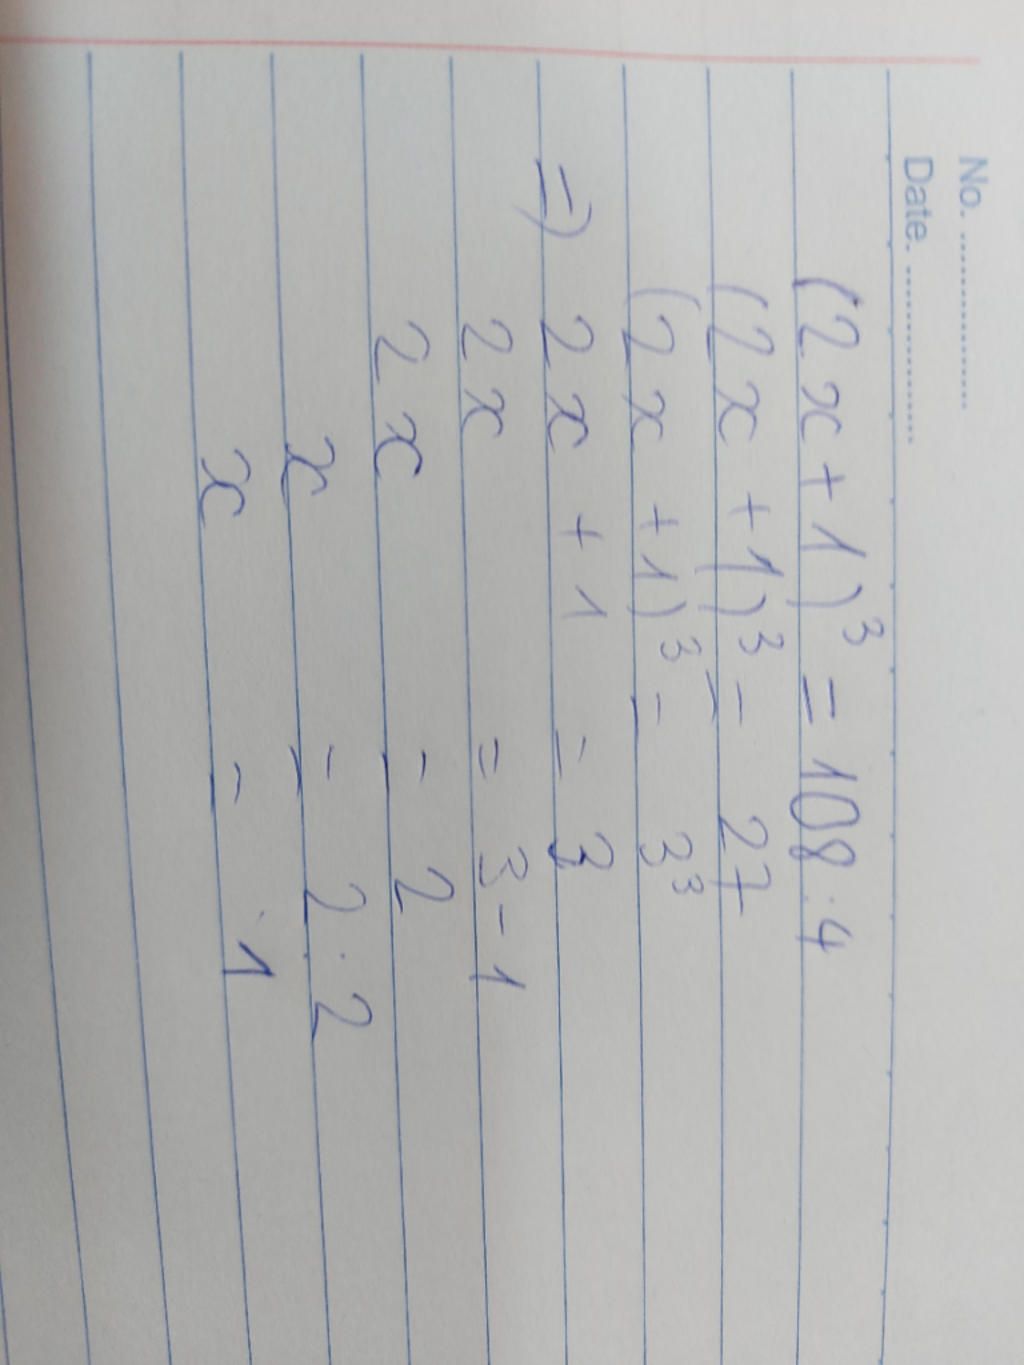 No. ................
Date. ................
(2x+1)³ = 108.4
(2x+1)³ = 27
(2x+1)³ = 3³
=) 2x+1 = 3
2x = 3-1
2x = 2
x = 2.2
x = 1